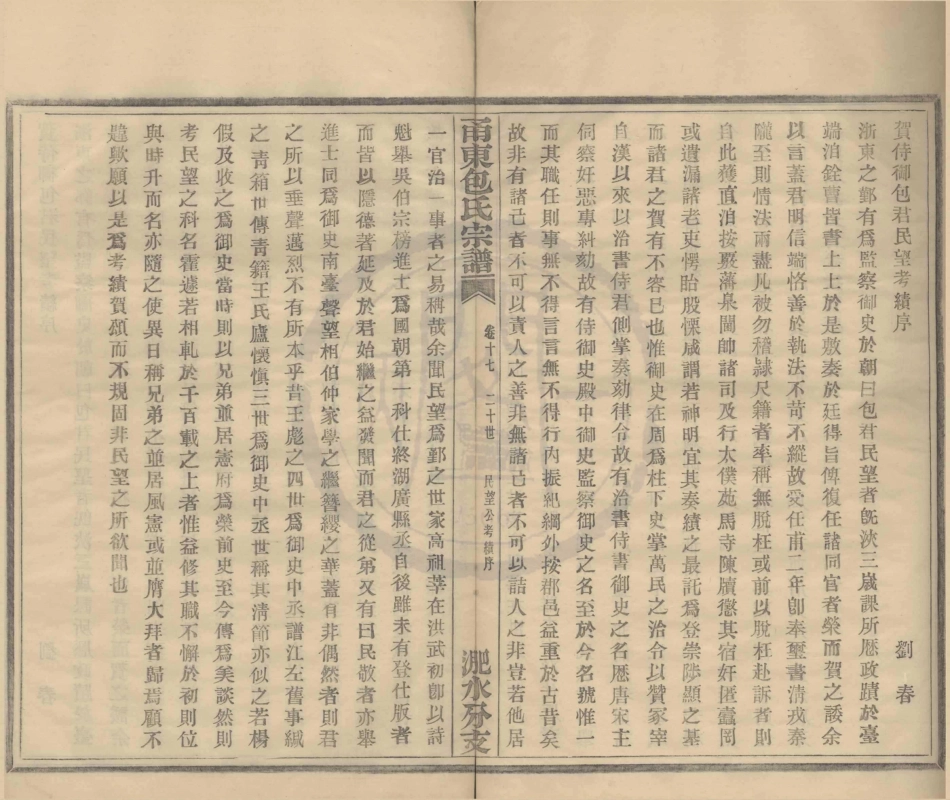 賀侍御包君民望考績序
劉春
浙東之鄞有爲監察御史於朝曰包君民望者旣浹三歲課所歷政蹟於臺
端洎銓曹皆書上上於是敷奏於廷得旨俾復任諸同官者榮而賀之諉余
以言蓋君明信端恪善於執法不苛不縱故受任甫二年卽奉璽書清戎秦
隴至則情法兩盡凡被勿稽隷尺籍者率稱無脫枉或前以脫枉赴訴者則
自此蔑直洎按覈藩臬閫帥諸司及行太僕苑馬寺陳牘懲其宿奸匿蠹罔
或遺漏諸老吏愕眙股慄咸謂若神明宜其奏績之最託爲登崇陟顯之基
而諸君之賀有不容已也惟御史在周爲柱下史掌萬民之治令以贊冢宰
自漢以來以治書侍君側掌奏劾律令故有治書侍書御史之名歷唐宋主
伺察奸惡專糾劾故有侍御史殿中御史監察御史之名至於今名號惟一
而其職任則事無不得言言無不得行內振紀綱外按郡邑益重於古昔矣
故非有諸己者不可以責人之善非無諸己者不可以詰人之非豈若他居
甬東包氏宗譜
卷十七 二十世 民望公考績序
淝水分支
一官治一事者之易稱哉余聞民望爲鄞之世家高祖莘在洪武初卽以詩
魁舉吳伯宗榜進士爲國朝第一科仕終湖廣縣丞自後雖未有登仕版者
而皆以隱德著延及於君始繼之益發聞而君之從弟又有曰民敬者亦舉
進士同爲御史南臺聲望相伯仲家學之繼簪纓之華蓋有非偶然者則君
之所以垂聲邁烈不有所本乎昔王彪之四世爲御史中丞譜江左舊事緘
之靑箱世傳靑籍王氏廬懷愼三世爲御史中丞世稱其清節亦似之若楊
假及收之爲御史當時則以兄弟並居憲府爲榮前史至今傳爲美談然則
考民望之科名霍遽若相軋於千百載之上者惟益修其職不懈於初則位
與時升而名亦隨之使異日稱兄弟之並居風憲或並膺大拜者歸焉顧不
韙歟願以是爲考績賀頌而不規固非民望之所欲聞也